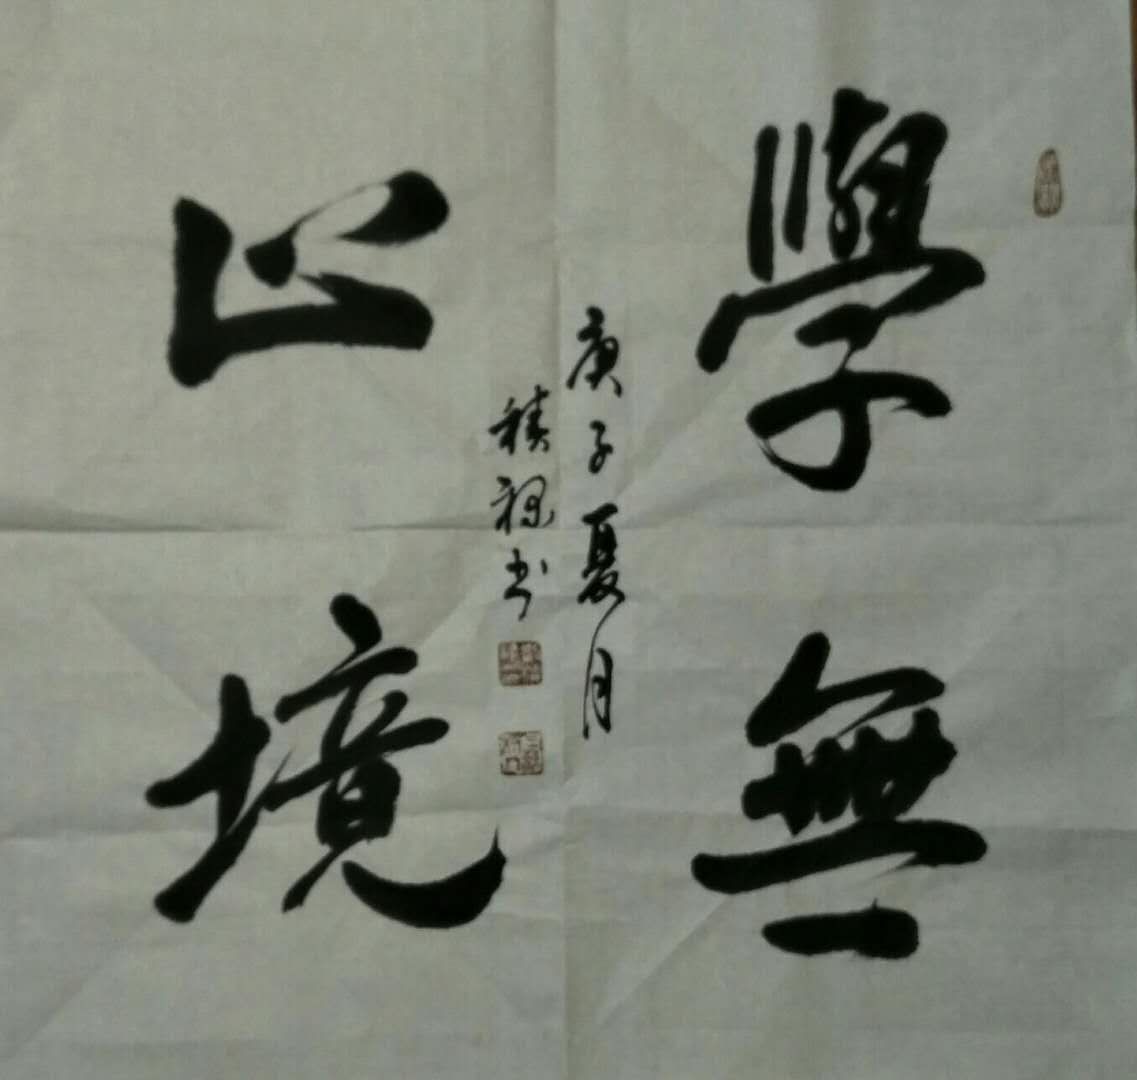 學無
止境
庚子夏月
積祿书